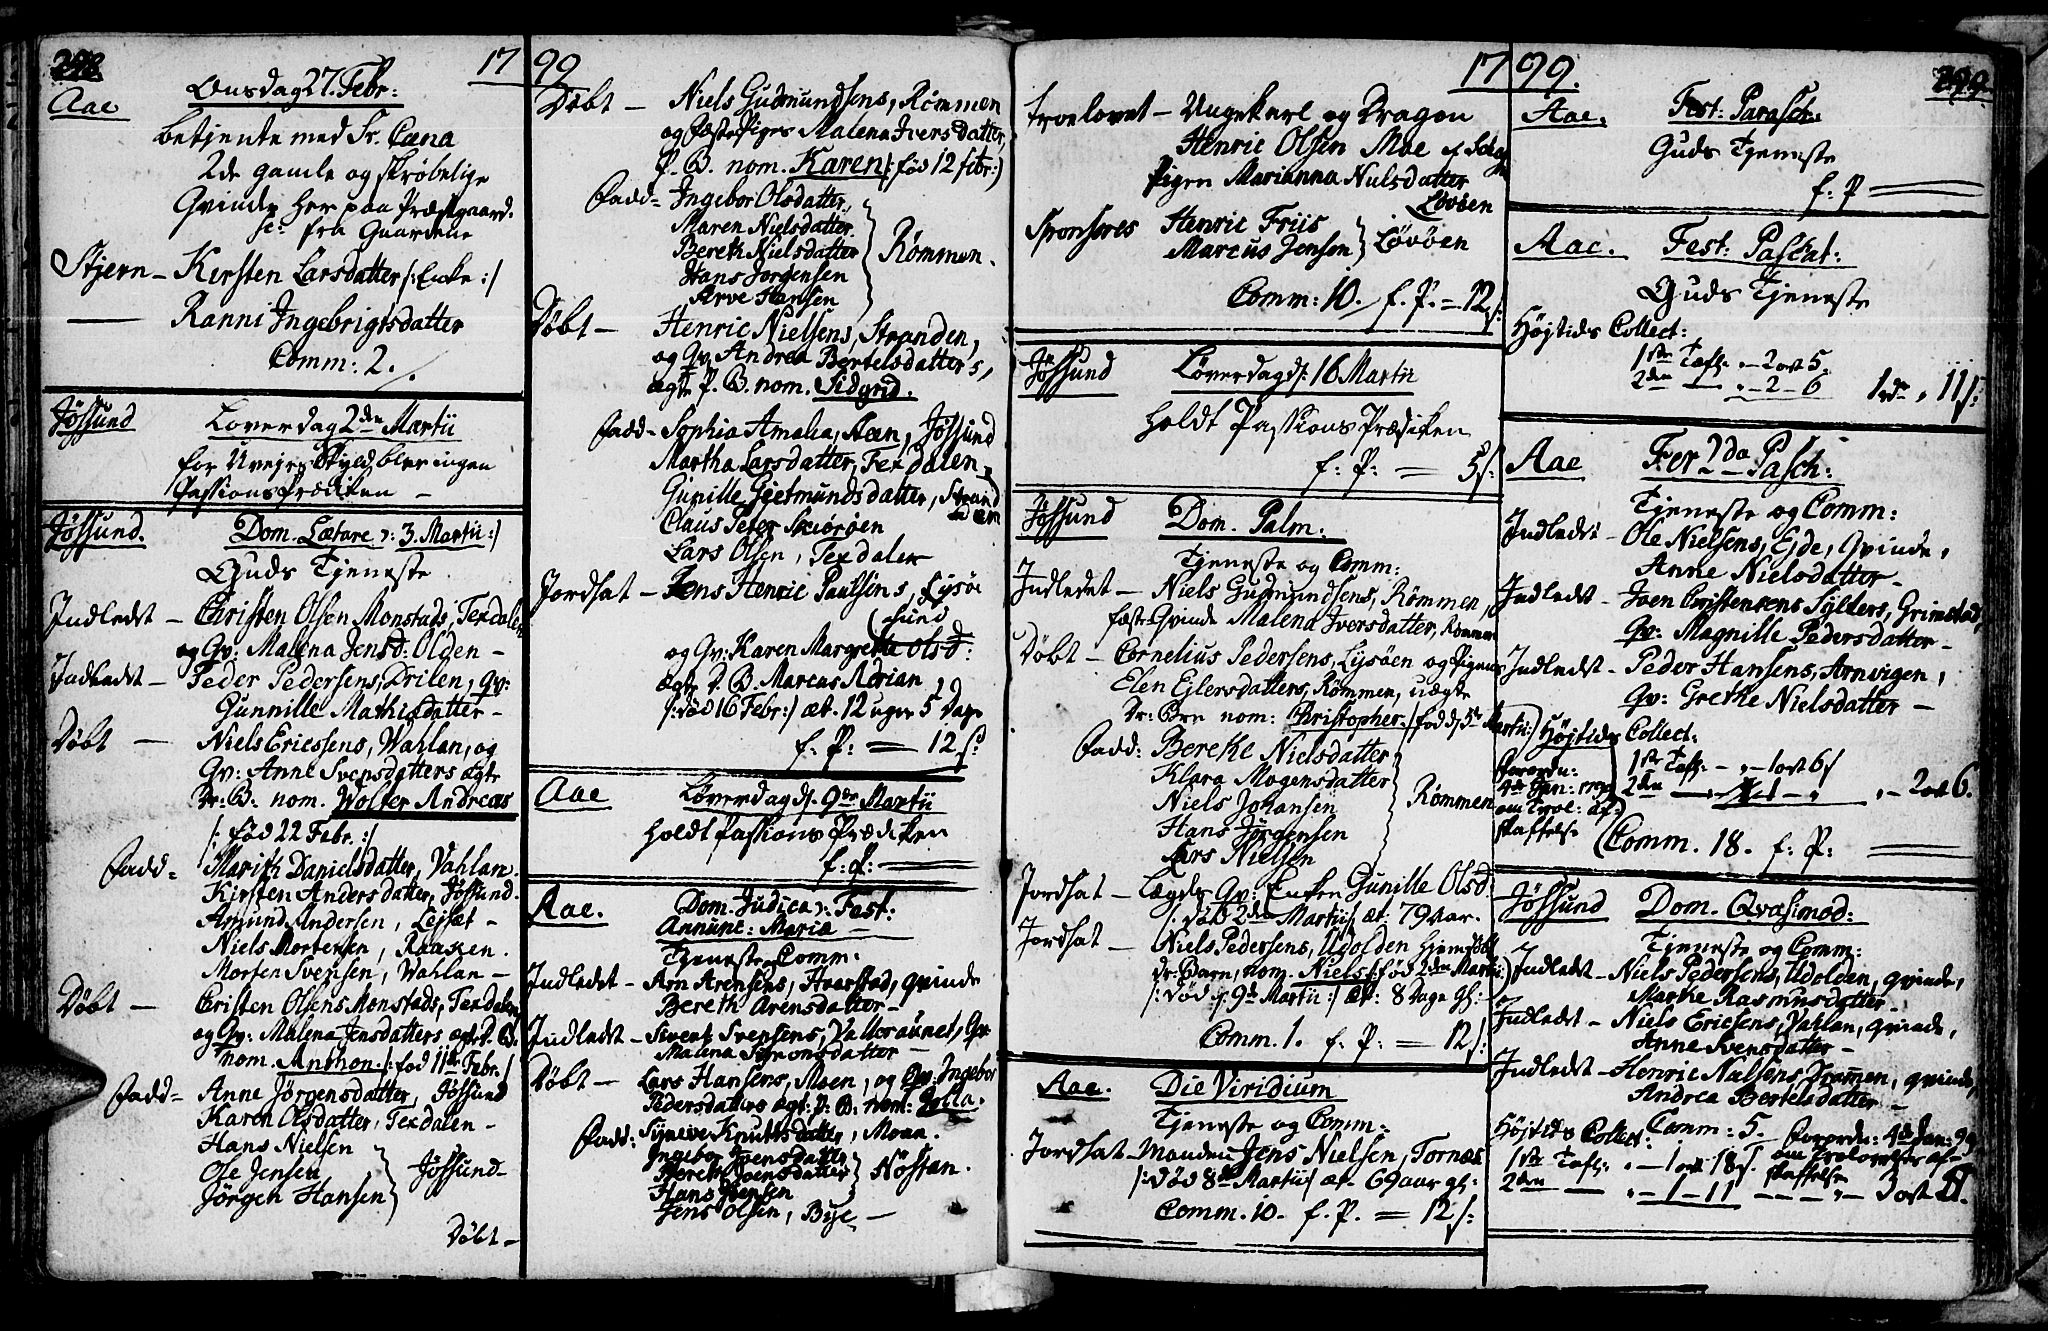 298
1799
Aae
Onsdag 27. Febr:
betjente med Sr. Cæna
2de gamle og skrøbelige
Qvinder her paa Præstgaard.
fra Gaardene
Stjern – Kersten Larsdatter /: Enke :/
Ranni Ingebrigtsdatter
Comm: 2.
Jøssund
Løverdag 2den Martii
for Uvejrs Skyld blev ingen
Passions Prædiken –
Jøssund.
Dom. Lætare 3. Martii :/
Guds Tjeneste
Indledet – Christen Olsen Monstads, Texdalen
og Qv: Malena Jensd: Olden –
Indledet – Peder Pedersens, Drilen, Qv:
Gunnille Mathisdatter –
Døbt – Niels Ericssens, Vahlan, og
Qv: Anne Svensdatters ægte
Dr: B: nom. Wolter Andreas
/: fød 22 Febr. :/
Fadd= Marith Danielsdatter, Vahlan.
Kirsten Andersdatter, Jøssund.
Amund Andersen, Lejsæt –
Niels Mortensen, Raaken.
Morten Svensen, Vahlan –
Døbt – Cristen Olsens Monstads, Texdalen
og Qv: Malena Jensdatters ægt. D. B.
nom. Anthon. /: fød 11te Febr. /
Fadd= Anne Jørgensdatter, Jøssund
Karen Olsdatter, Texdalen –
Hans Nielsen
Ole Jensen
Jørgen Hansen } Jøssund –
Døbt –
Døbt – Niels Gudmundsens, Rømmen
og Fæste Piges Malena Iversdatter,
P. B. nom. Karen /: fød 12 febr: /
Fadd= Ingebor Olsdatter,
Maren Nielsdatter
Bereth Nielsdatter
Hans Jørgensen
Arve Hansen } Rømmen.
Døbt – Henric Nielsens, Stranden,
og Qv. Andrea Bertelsdatters,
ægte P. B. nom. Sidgrid.
Fadd= Sophia Amalia, Steen, Jøssund
Martha Larsdatter, Texdalen,
Gunille Gjetmundsdatter, Strand
Claus Peter
Lars Olsen, Texdalen
Jordsat – Jens Henric Paulsens, Lysøe
sund
og Qv: Karen Margretha Olsd:
ægte D. B. Marcus Adrian,
/: død 16 Febr: / æt. 12 uger 5 Dage
f. P: = 12 s:
Aae
Løverdag d. 9de Martii
holdt Passions Prædiken
f. P: =
Aae.
Dom. Judica Fest:
Annunc: Mariæ –
Tjeneste Comm.
Indledet – Arn Arensens, Hvarstad, qvinde
Bereth Arensdatter –
Indledet – Sivert Svensens, Valteraunet, Qv
Malena Simonsdatter –
Døbt – Lars Hansens, Moen, og Qv: Ingebor
Pedersdatters ægt: P: B. nom:
Fadd: Synneve Knuttsdatter, Moen.
Ingebor Svensdatter
Bereth Svensdatter
Hans Svensen } Nøstan.
Jens Olsen, Bye –
1799.
299
Trolovet – Ungekarl og Dragon
Henric Olsen Moe
Pigen Marianna Nielsdatter
Løvøen
Sponsores Henric Friis
Marcus Jensen } Løvøen
Comm: 10. f. P. = 12 s:
Jøssund
Løverdag d: 16 Martii
holdt Passions Prædiken
f: P: = 5 s:
Jøssund
Dom. Palm.
Tjeneste og Comm:
Indledet – Niels Gudmundsens, Rømmen,
fæste Qvinde Malena Iversdatter, Rømmen
Døbt – Cornelius Pedersens, Lysøen og Pigens
Elen Ejlersdatters, Rømmen, uægte
Dr: Børn nom: Christopher: / fød d: 5te Martii: /
Fadd: Berethe Nielsdatter
Klara Mogensdatter
Niels Johansen
Hans Jørgensen
Lars Nielsen } Rømmen
Jordsat – Lægds Qv: Enken Gunille Olsd:
/: død 2den Martii / æt: 79 aar.
Jordsat – Niels Pedersens, Udolden hjemdøbt
dr: Barn, nom. Niels /: fød 2den Martii: /
/: død 9de Martii : / æt: 8 Dage gl:
Comm. 1. f: P: = 12 s:
Aae.
Die Viridium
Tjeneste og Comm:
Jordsat – Manden Jens Nielsen, Tornæs
/: død 8de Martii / æt. 69 aar gl:
Comm. 10. f. P. = 12 s:
Aae.
Fest: Parasch:
Guds Tjeneste
f: P =
Aae.
Fest: Paschat:
Guds Tjeneste
Højtids Collect:
1ste Tafl: „ – 2 ort 5.
2den — „ – 2 – 6
1 rd „ 11 s:
Aae
Fer 2da Pasch:
Tjeneste og Comm:
Indledet – Ole Nielsens, Ejde, Qvinde,
Anne Nielsdatter –
Indledet – Iven Christensens Sylters, Grimstad,
Qv: Magnille Pedersdatter –
Indledet – Peder Hansens, Arnvigen,
Qv: Grethe Nielsdatter –
Højtids Collect:
1ste Tafl: – „ – 1 ort 6 s
2den
„ – 2 ort 6.
Forordn:
4de Jan: 1799
om Trol: af=
skaffelse
Comm. 18. f: P: =
Jøssund
Dom. Qvasimod:
Tjeneste og Comm:
Indledet – Niels Pedersens, Udolden, qvinde,
Marthe Rasmusdatter
Indledet – Niels Ericsens, Vahlan, qvinde,
Anne Svensdatter –
Indledet – Henric Nielsens, qvinde,
Andrea Bertelsdatter –
Højtids Collect: Comm: 5.
Forordn: 4de Jan: 99
om Trolovelses af=
skaffelse
1ste Tafl: „ – 1 ort 18 s.
2den — „ – 1 – 11 — „ – 3 ort